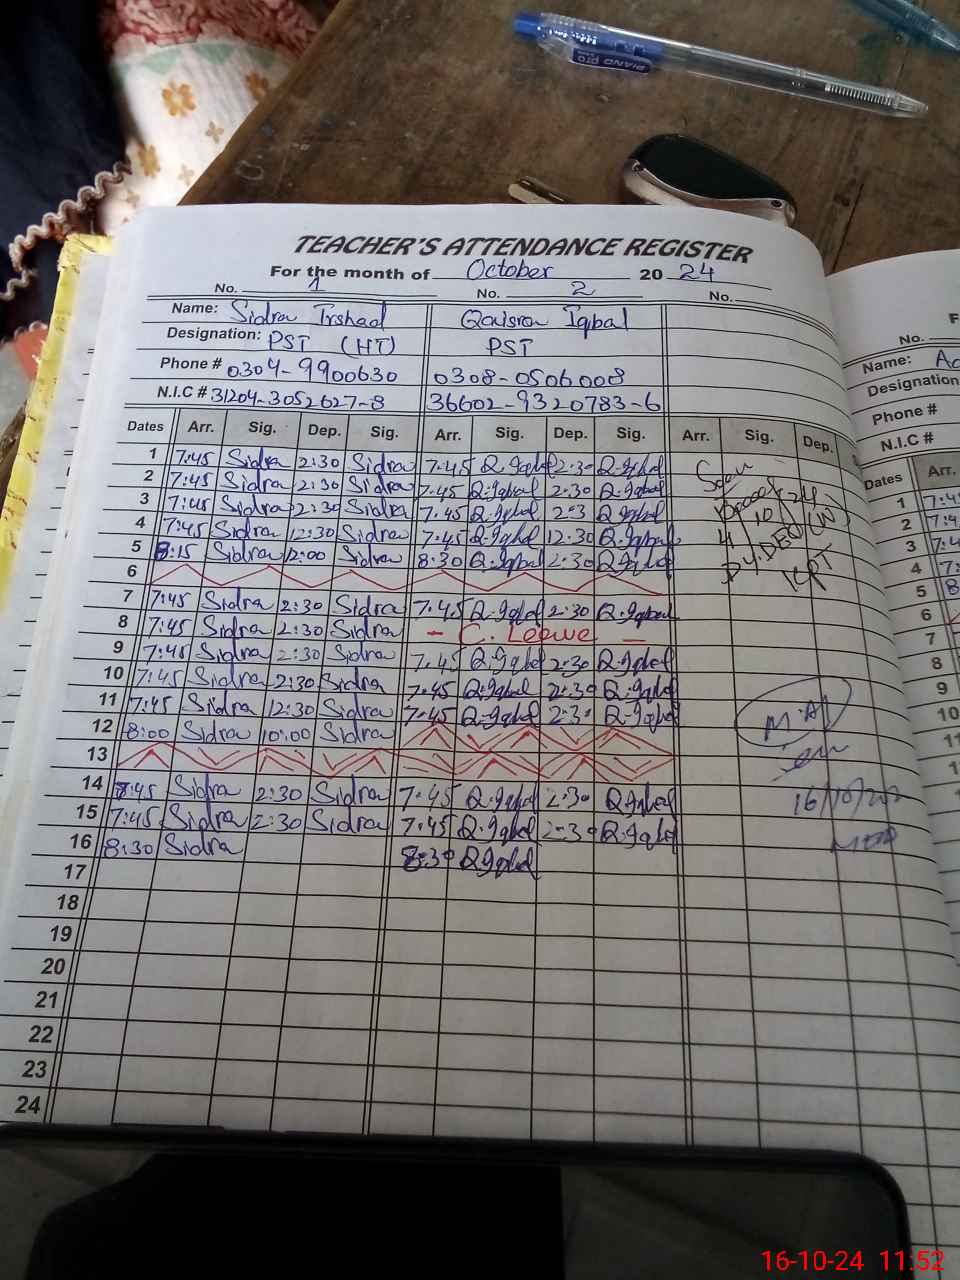 PIANO pro
TEACHER'S ATTENDANCE REGISTER
For the month of October 20 24
No. 1 No. 2 No.
Name: Sidra Irshad Qaisra Iqbal
Designation: PST (HT) PST
Phone # 0304-9900630 0308-0506008
N.I.C # 31204-3052627-8 36602-9320783-6
Dates Arr. Sig. Dep. Sig. Arr. Sig. Dep. Sig. Arr. Sig. Dep.
1 7:45 Sidra 2:30 Sidra 7.45 Q.Iqbal 2:30 Q.Iqbal
2 7:45 Sidra 2:30 Sidra 7.45 Q.Iqbal 2.30 Q.Iqbal
3 7:45 Sidra 2:30 Sidra 7.45 Q.Iqbal 2.3 Q.Iqbal
4 7:45 Sidra 12:30 Sidra 7.45 Q.Iqbal 12.30 Q.Iqbal
5 8:15 Sidra 12:00 Sidra 8:30 Q.Iqbal 2.30 Q.Iqbal
6
7 7:45 Sidra 2:30 Sidra 7.45 Q.Iqbal 2:30 Q.Iqbal
8 7:45 Sidra 2:30 Sidra - C. Leave -
9 7:45 Sidra 2:30 Sidra 7.45 Q.Iqbal 2:30 Q.Iqbal
10 7:45 Sidra 2:30 Sidra 7.45 Q.Iqbal 2.30 Q.Iqbal
11 7:45 Sidra 12:30 Sidra 7.45 Q.Iqbal 2.3 Q.Iqbal
12 8:00 Sidra 10:00 Sidra
13
14 7:45 Sidra 2:30 Sidra 7.45 Q.Iqbal 2.30 Q.Iqbal
15 7:45 Sidra 2:30 Sidra 7.45 Q.Iqbal 2.30 Q.Iqbal
16 8:30 Sidra 8:30 Q.Iqbal
17
18
19
20
21
22
23
24
DY.DEO(W)
KPT
16/10/202
No.
Name:
Designation
Phone #
N.I.C #
Dates Arr.
1 7:4
2 7:4
3 7:4
4 7:
5 8
6
7
8
9
10
16-10-24 11:52